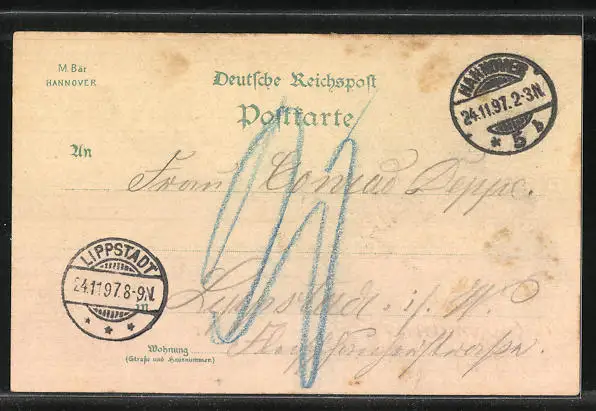 M. Bär
HANNOVER
Deutsche Reichspost
Postkarte
HANNOVER
24.11.97. 2-3N.
* 5 b
An
Frau Conrad Deppe.
LIPPSTADT
24.11.97. 8-9N.
* * *
in Lippstadt. i/W.
Wohnung
(Straße und Hausnummer)